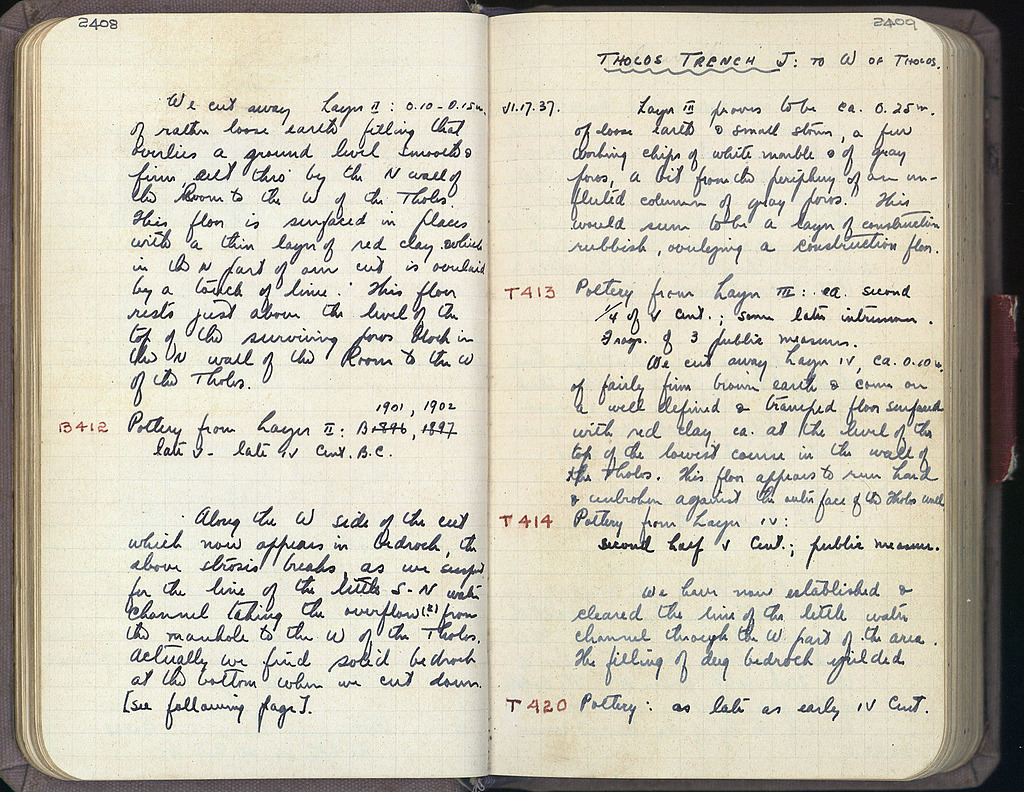 2408
We cut away Layer II : 0.10 - 0.15 m.
of rather loose earth filling that
overlies a ground level smooth &
firm cut thro' by the N wall of
the Room to the W of the Tholos.
This floor is surfaced in places
with a thin layer of red clay which
in the N part of our cut is overlaid
by a touch of lime. This floor
rests just above the level of the
top of the surviving poros block in
the N wall of the Room to the W
of the Tholos.
1901, 1902
B412 Pottery from Layer II : B1896, 1897
late V - late IV Cent. B.C.
Along the W side of the cut
which now appears in bedrock, the
above strosis breaks, as we suspect
for the line of the little S-N water
channel taking the overflow (?) from
the manhole to the W of the Tholos.
Actually we find solid bedrock
at the bottom when we cut down.
[see following page].
2409
THOLOS TRENCH J: TO W OF THOLOS.
VI.17.37. Layer III proves to be ca. 0.25 m.
of loose earth & small stones, a few
working chips of white marble & of gray
poros, a bit from the periphery of an un-
fluted column of gray poros. This
would seem to be a layer of construction
rubbish, overlying a construction floor.
T413 Pottery from Layer III : ca. second
1/4 of V Cent.; some later intrusion.
Frags. of 3 public measures.
We cut away Layer IV, ca. 0.10 m.
of fairly firm brown earth & come on
a well defined & tramped floor surfaced
with red clay ca. at the level of the
top of the lowest course in the wall of
the Tholos. This floor appears to run hard
& unbroken against the outer face of the Tholos wall
T414 Pottery from Layer IV :
second half V Cent.; public measure.
We have now established &
cleared the line of the little water
channel through the W part of the area.
The filling of dug bedrock yielded
T420 Pottery : as late as early IV Cent.